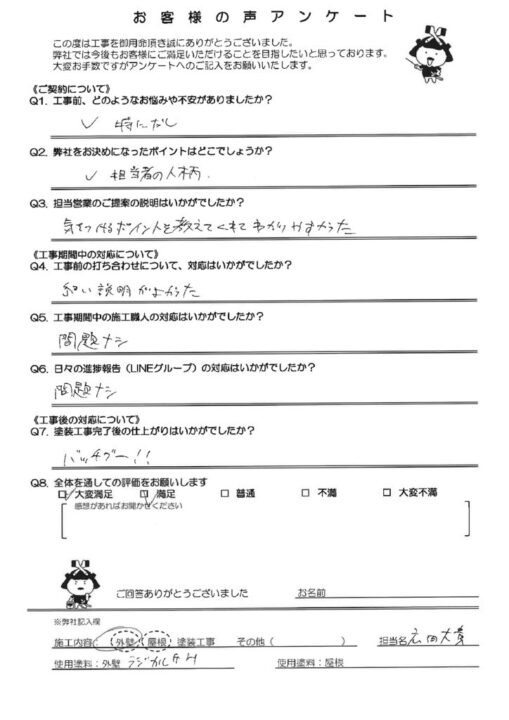 お客様の声アンケート
この度は工事を御用命頂き誠にありがとうございました。
弊社では今後もお客様にご満足いただけることを目指したいと思っております。
大変お手数ですがアンケートへのご記入をお願いいたします。
《ご契約について》
Q1. 工事前、どのようなお悩みや不安がありましたか？
✓ 特になし
Q2. 弊社をお決めになったポイントはどこでしょうか？
✓ 担当者の人柄.
Q3. 担当営業のご提案の説明はいかがでしたか？
気をつけるポイントを教えてくれてわかりやすかった
《工事期間中の対応について》
Q4. 工事前の打ち合わせについて、対応はいかがでしたか？
細い説明がよかった
Q5. 工事期間中の施工職人の対応はいかがでしたか？
問題ナシ
Q6. 日々の進捗報告（LINEグループ）の対応はいかがでしたか？
問題ナシ
《工事後の対応について》
Q7. 塗装工事完了後の仕上がりはいかがでしたか？
バッチグー!!
Q8. 全体を通しての評価をお願いします
☐ 大変満足 ☑ 満足 ☐ 普通 ☐ 不満 ☐ 大変不満
感想があればお聞かせください
ご回答ありがとうございました お名前
※弊社記入欄
施工内容 外壁 屋根 塗装工事 その他（ ） 担当名
使用塗料：外壁 ラジカル 使用塗料：屋根